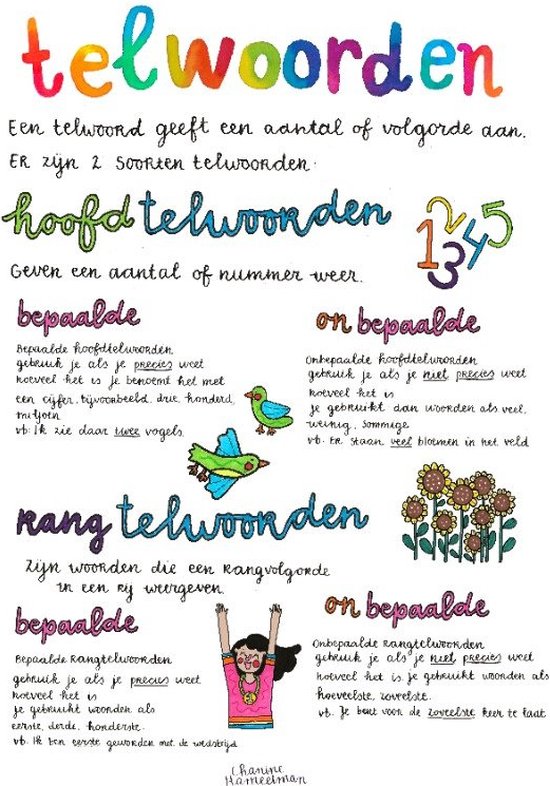 telwoorden
Een telwoord geeft een aantal of volgorde aan.
Er zijn 2 soorten telwoorden.
hoofdtelwoorden
1 2 3 4 5
Geven een aantal of nummer weer.
bepaalde
Bepaalde hoofdtelwoorden
gebruik je als je precies weet
hoeveel het is je benoemt het met
een cijfer, bijvoorbeeld drie, honderd,
miljoen
vb: Ik zie daar twee vogels.
onbepaalde
Onbepaalde hoofdtelwoorden
gebruik je als je niet precies weet
hoeveel het is
je gebruikt dan woorden als veel,
weinig, sommige
vb. Er staan veel bloemen in het veld
rangtelwoorden
Zijn woorden die een rangvolgorde
in een rij weergeven.
bepaalde
Bepaalde rangtelwoorden
gebruik je als je precies weet
hoeveel het is
je gebruikt woorden als
eerste, derde, honderste.
vb. Ik ben eerste geworden met de wedstrijd
onbepaalde
Onbepaalde rangtelwoorden
gebruik je als je niet precies weet
hoeveel het is. je gebruikt woorden als
hoeveelste, zoveelste.
vb. Je bent voor de zoveelste keer te laat.
Chanine
Hameetman